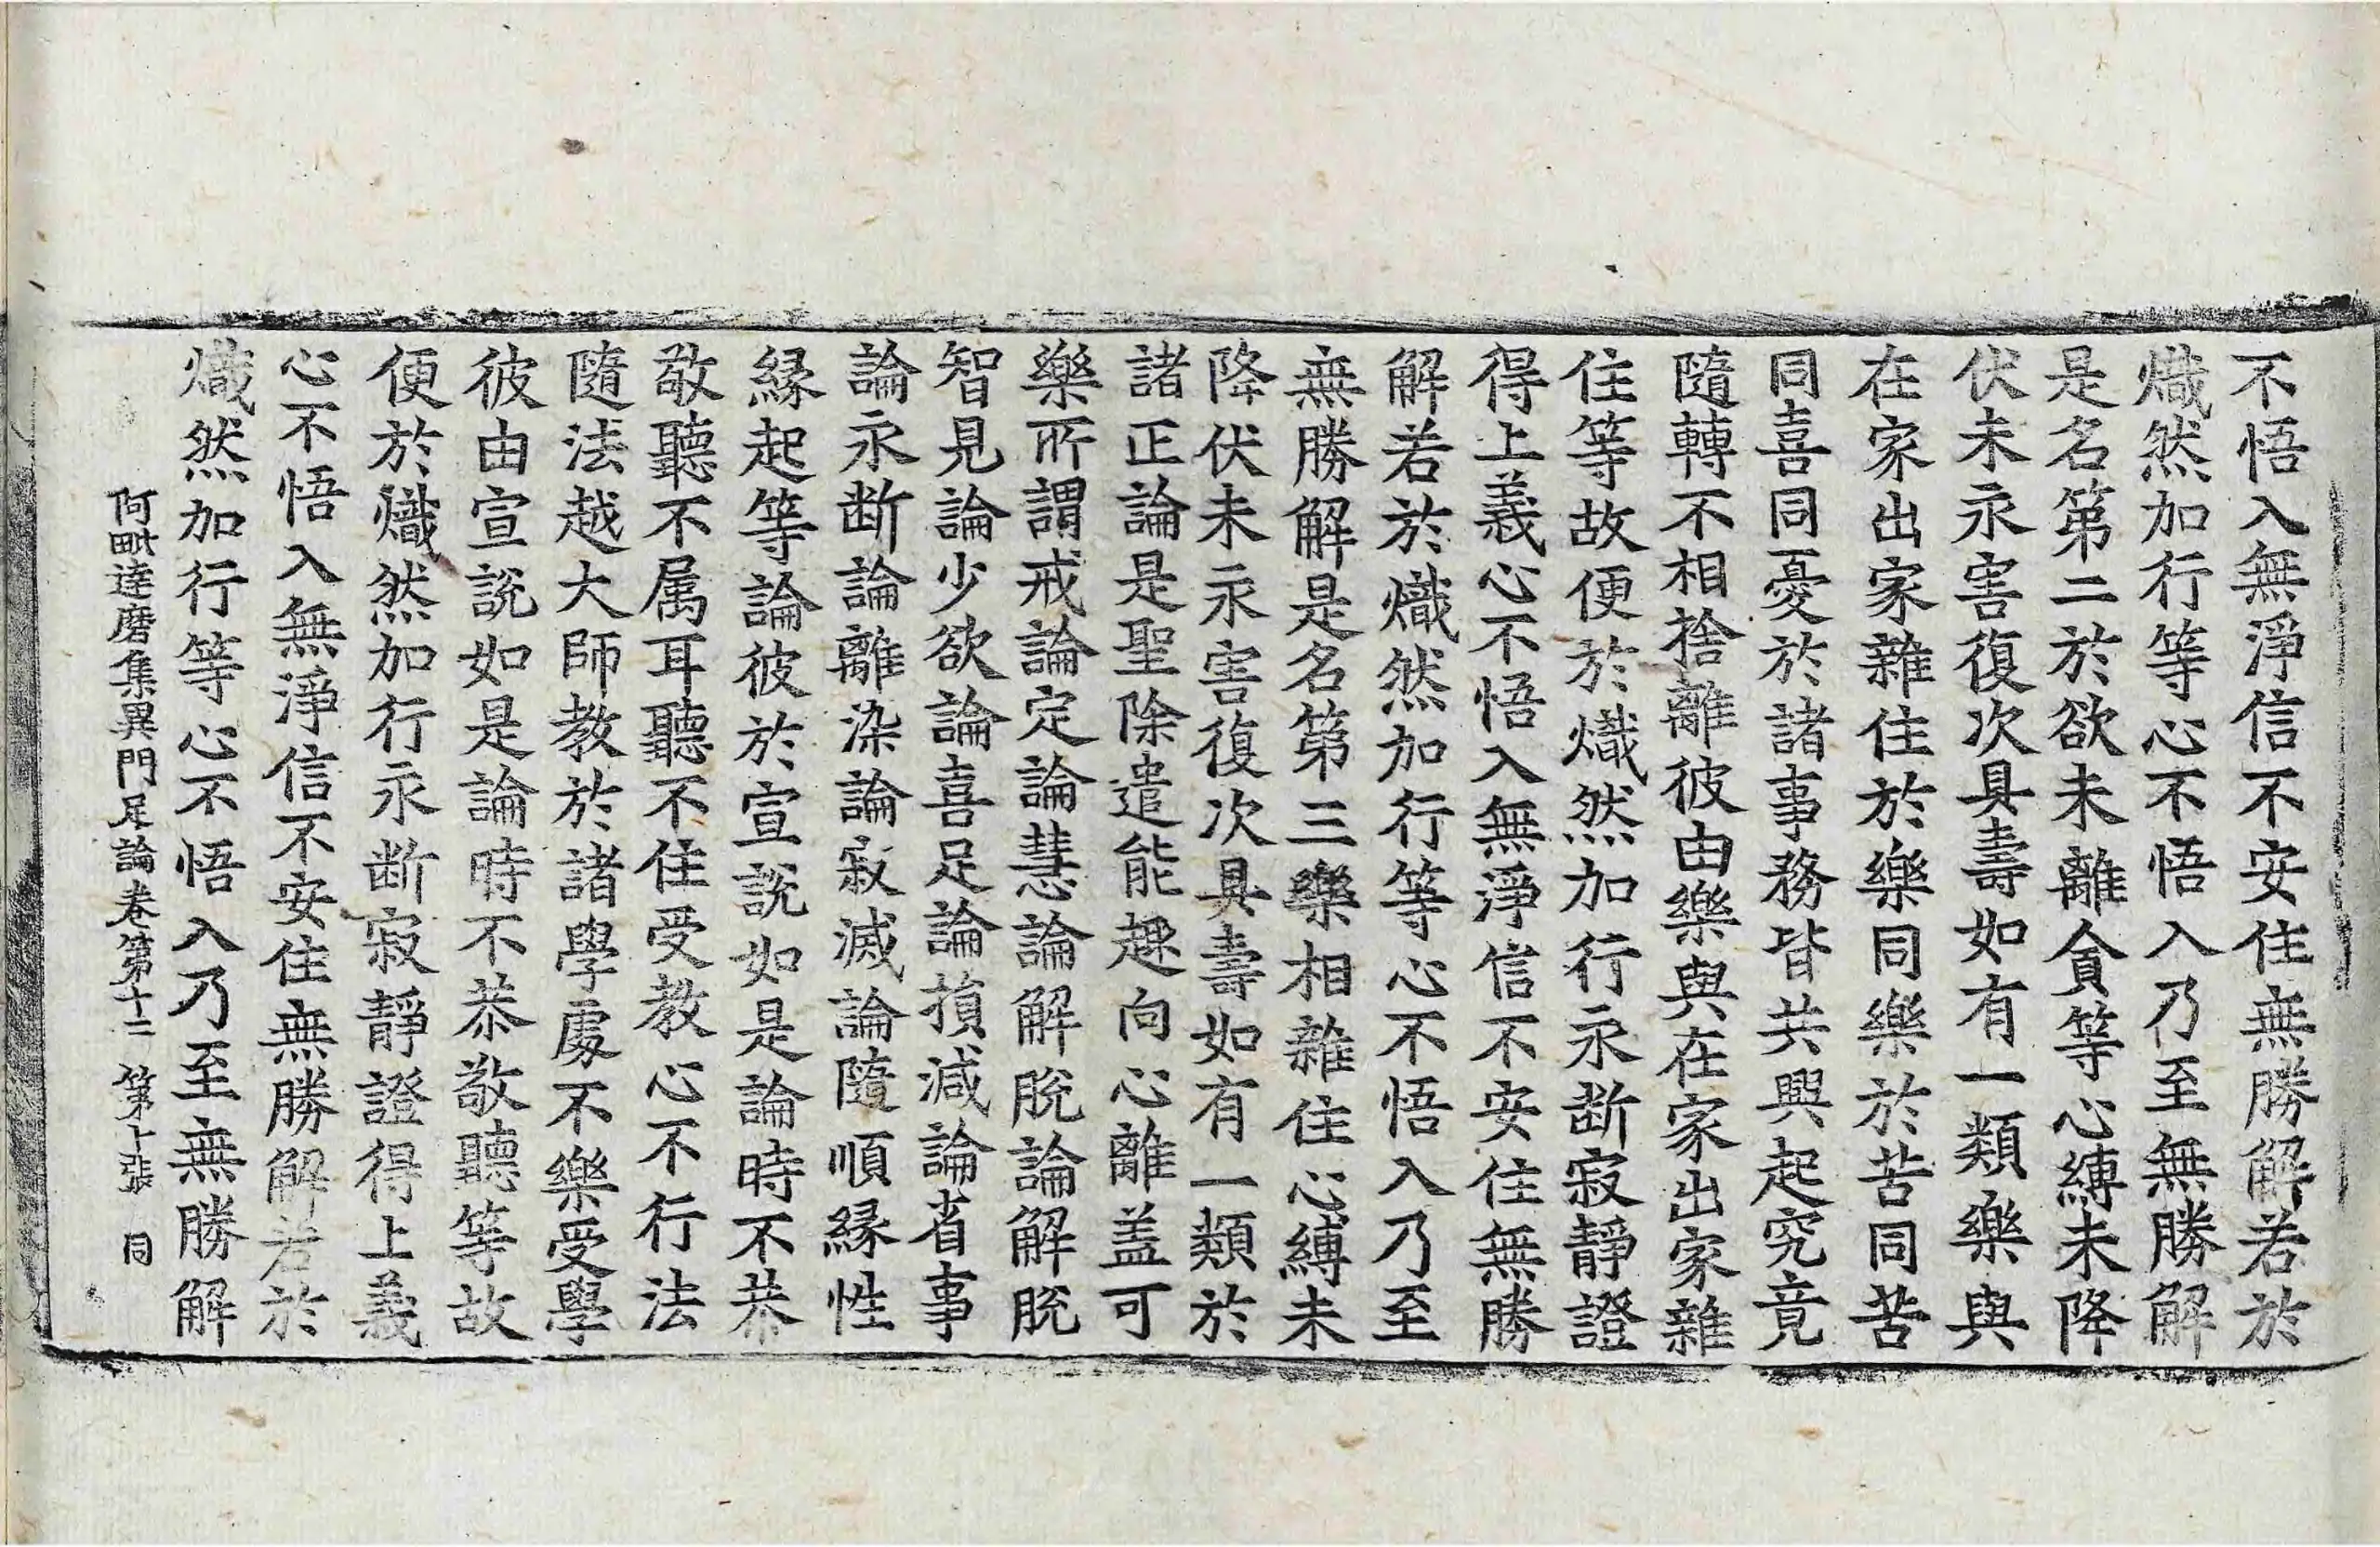 不悟入無淨信不安住無勝解若於
熾然加行等心不悟入乃至無勝解
是名第二於欲未離貪等心縛未降
伏未永害復次具壽如有一類樂與
在家出家雜住於樂同樂於苦同苦
同喜同憂於諸事務皆共興起究竟
隨轉不相捨離彼由樂與在家出家雜
住等故便於熾然加行永断寂靜證
得上義心不悟入無淨信不安住無勝
解若於熾然加行等心不悟入乃至
無勝解是名第三樂相雜住心縛未
降伏未永害復次具壽如有一類於
諸正論是聖除遣能趣向心離盖可
樂所謂戒論定論慧論解脫論解脫
智見論少欲論喜足論損減論省事
論永断論離染論寂滅論隨順緣性
緣起等論彼於宣說如是論時不恭
敬聽不属耳聽不住受教心不行法
隨法越大師教於諸學處不樂受學
彼由宣說如是論時不恭敬聽等故
便於熾然加行永断寂靜證得上義
心不悟入無淨信不安住無勝解若於
熾然加行等心不悟入乃至無勝解
阿毗達磨集異門足論卷第十二 第十張 同